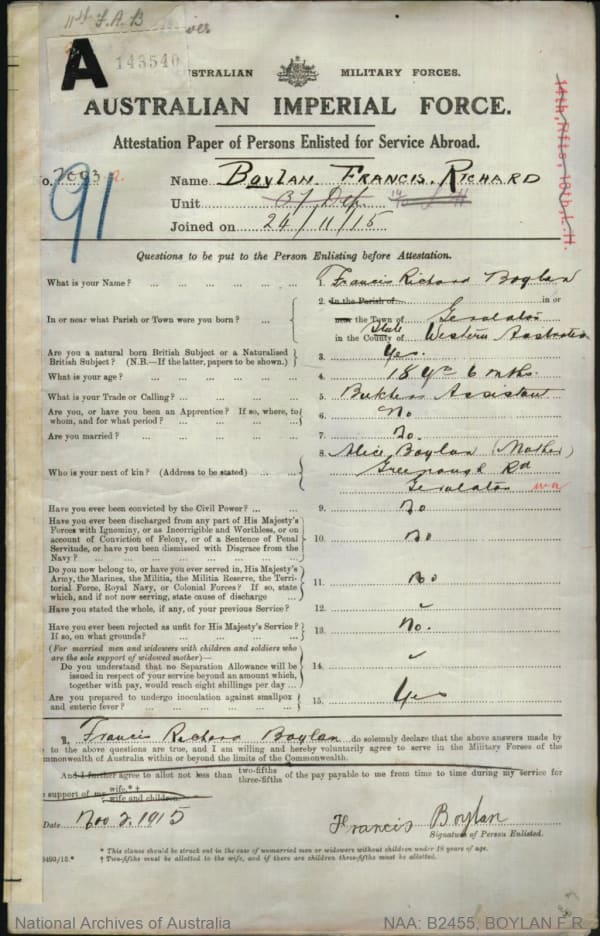 11th L.H.
A
143540
AUSTRALIAN MILITARY FORCES.
AUSTRALIAN IMPERIAL FORCE.
Attestation Paper of Persons Enlisted for Service Abroad.
14th Rfts, 10th L.H.
No.
91
Name BOYLAN. FRANCIS. RICHARD
Unit
Joined on 24/11/15
Questions to be put to the Person Enlisting before Attestation.
What is your Name? ... 1. Francis Richard Boylan
In or near what Parish or Town were you born? ... 2. In the Parish of in or
near the Town of Geraldton
State
in the County of Western Australia
Are you a natural born British Subject or a Naturalised
British Subject? (N.B.—If the latter, papers to be shown.) 3. Yes.
What is your age? ... 4. 18 yrs 6 mths.
What is your Trade or Calling? ... 5. Assistant
Are you, or have you been an Apprentice? If so, where, to
whom, and for what period? ... 6. No
Are you married? ... 7. No.
Who is your next of kin? (Address to be stated) ... 8. Alice Boylan (Mother)
Greenough Rd
Geraldton W.A
Have you ever been convicted by the Civil Power? ... 9. No
Have you ever been discharged from any part of His Majesty's
Forces with Ignominy, or as Incorrigible and Worthless, or on
account of Conviction of Felony, or of a Sentence of Penal
Servitude, or have you been dismissed with Disgrace from the
Navy? ... 10. No
Do you now belong to, or have you ever served in, His Majesty's
Army, the Marines, the Militia, the Militia Reserve, the Terri-
torial Force, Royal Navy, or Colonial Forces? If so, state
which, and if not now serving, state cause of discharge 11. No
Have you stated the whole, if any, of your previous Service? 12.
Have you ever been rejected as unfit for His Majesty's Service?
If so, on what grounds? ... 13. No.
(For married men and widowers with children and soldiers who
are the sole support of widowed mother)—
Do you understand that no Separation Allowance will be
issued in respect of your service beyond an amount which,
together with pay, would reach eight shillings per day ... 14.
Are you prepared to undergo inoculation against smallpox
and enteric fever? ... 15. Yes
I, Francis Richard Boylan do solemnly declare that the above answers made by
to the above questions are true, and I am willing and hereby voluntarily agree to serve in the Military Forces of the
mmonwealth of Australia within or beyond the limits of the Commonwealth.
And I further agree to allot not less than two-fifths
three-fifths of the pay payable to me from time to time during my service for
support of my wife.*†
wife and children.
Date Nov 2. 1915
Francis Boylan
Signature of Person Enlisted.
* This clause should be struck out in the case of unmarried men or widowers without children under 18 years of age.
† Two-fifths must be allotted to the wife, and if there are children three-fifths must be allotted.
National Archives of Australia
NAA: B2455, BOYLAN F R